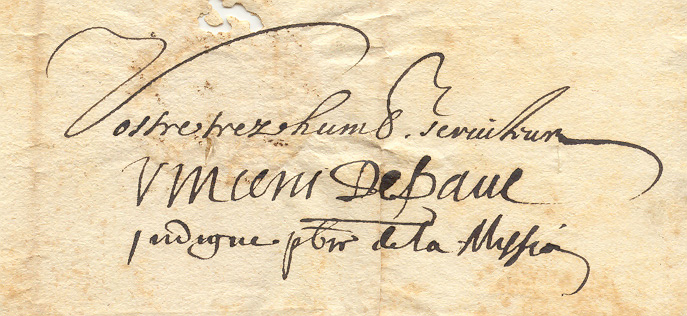 Vostre trez humb. serviteur
Vincent Depaul
indigne pbre de la Missió